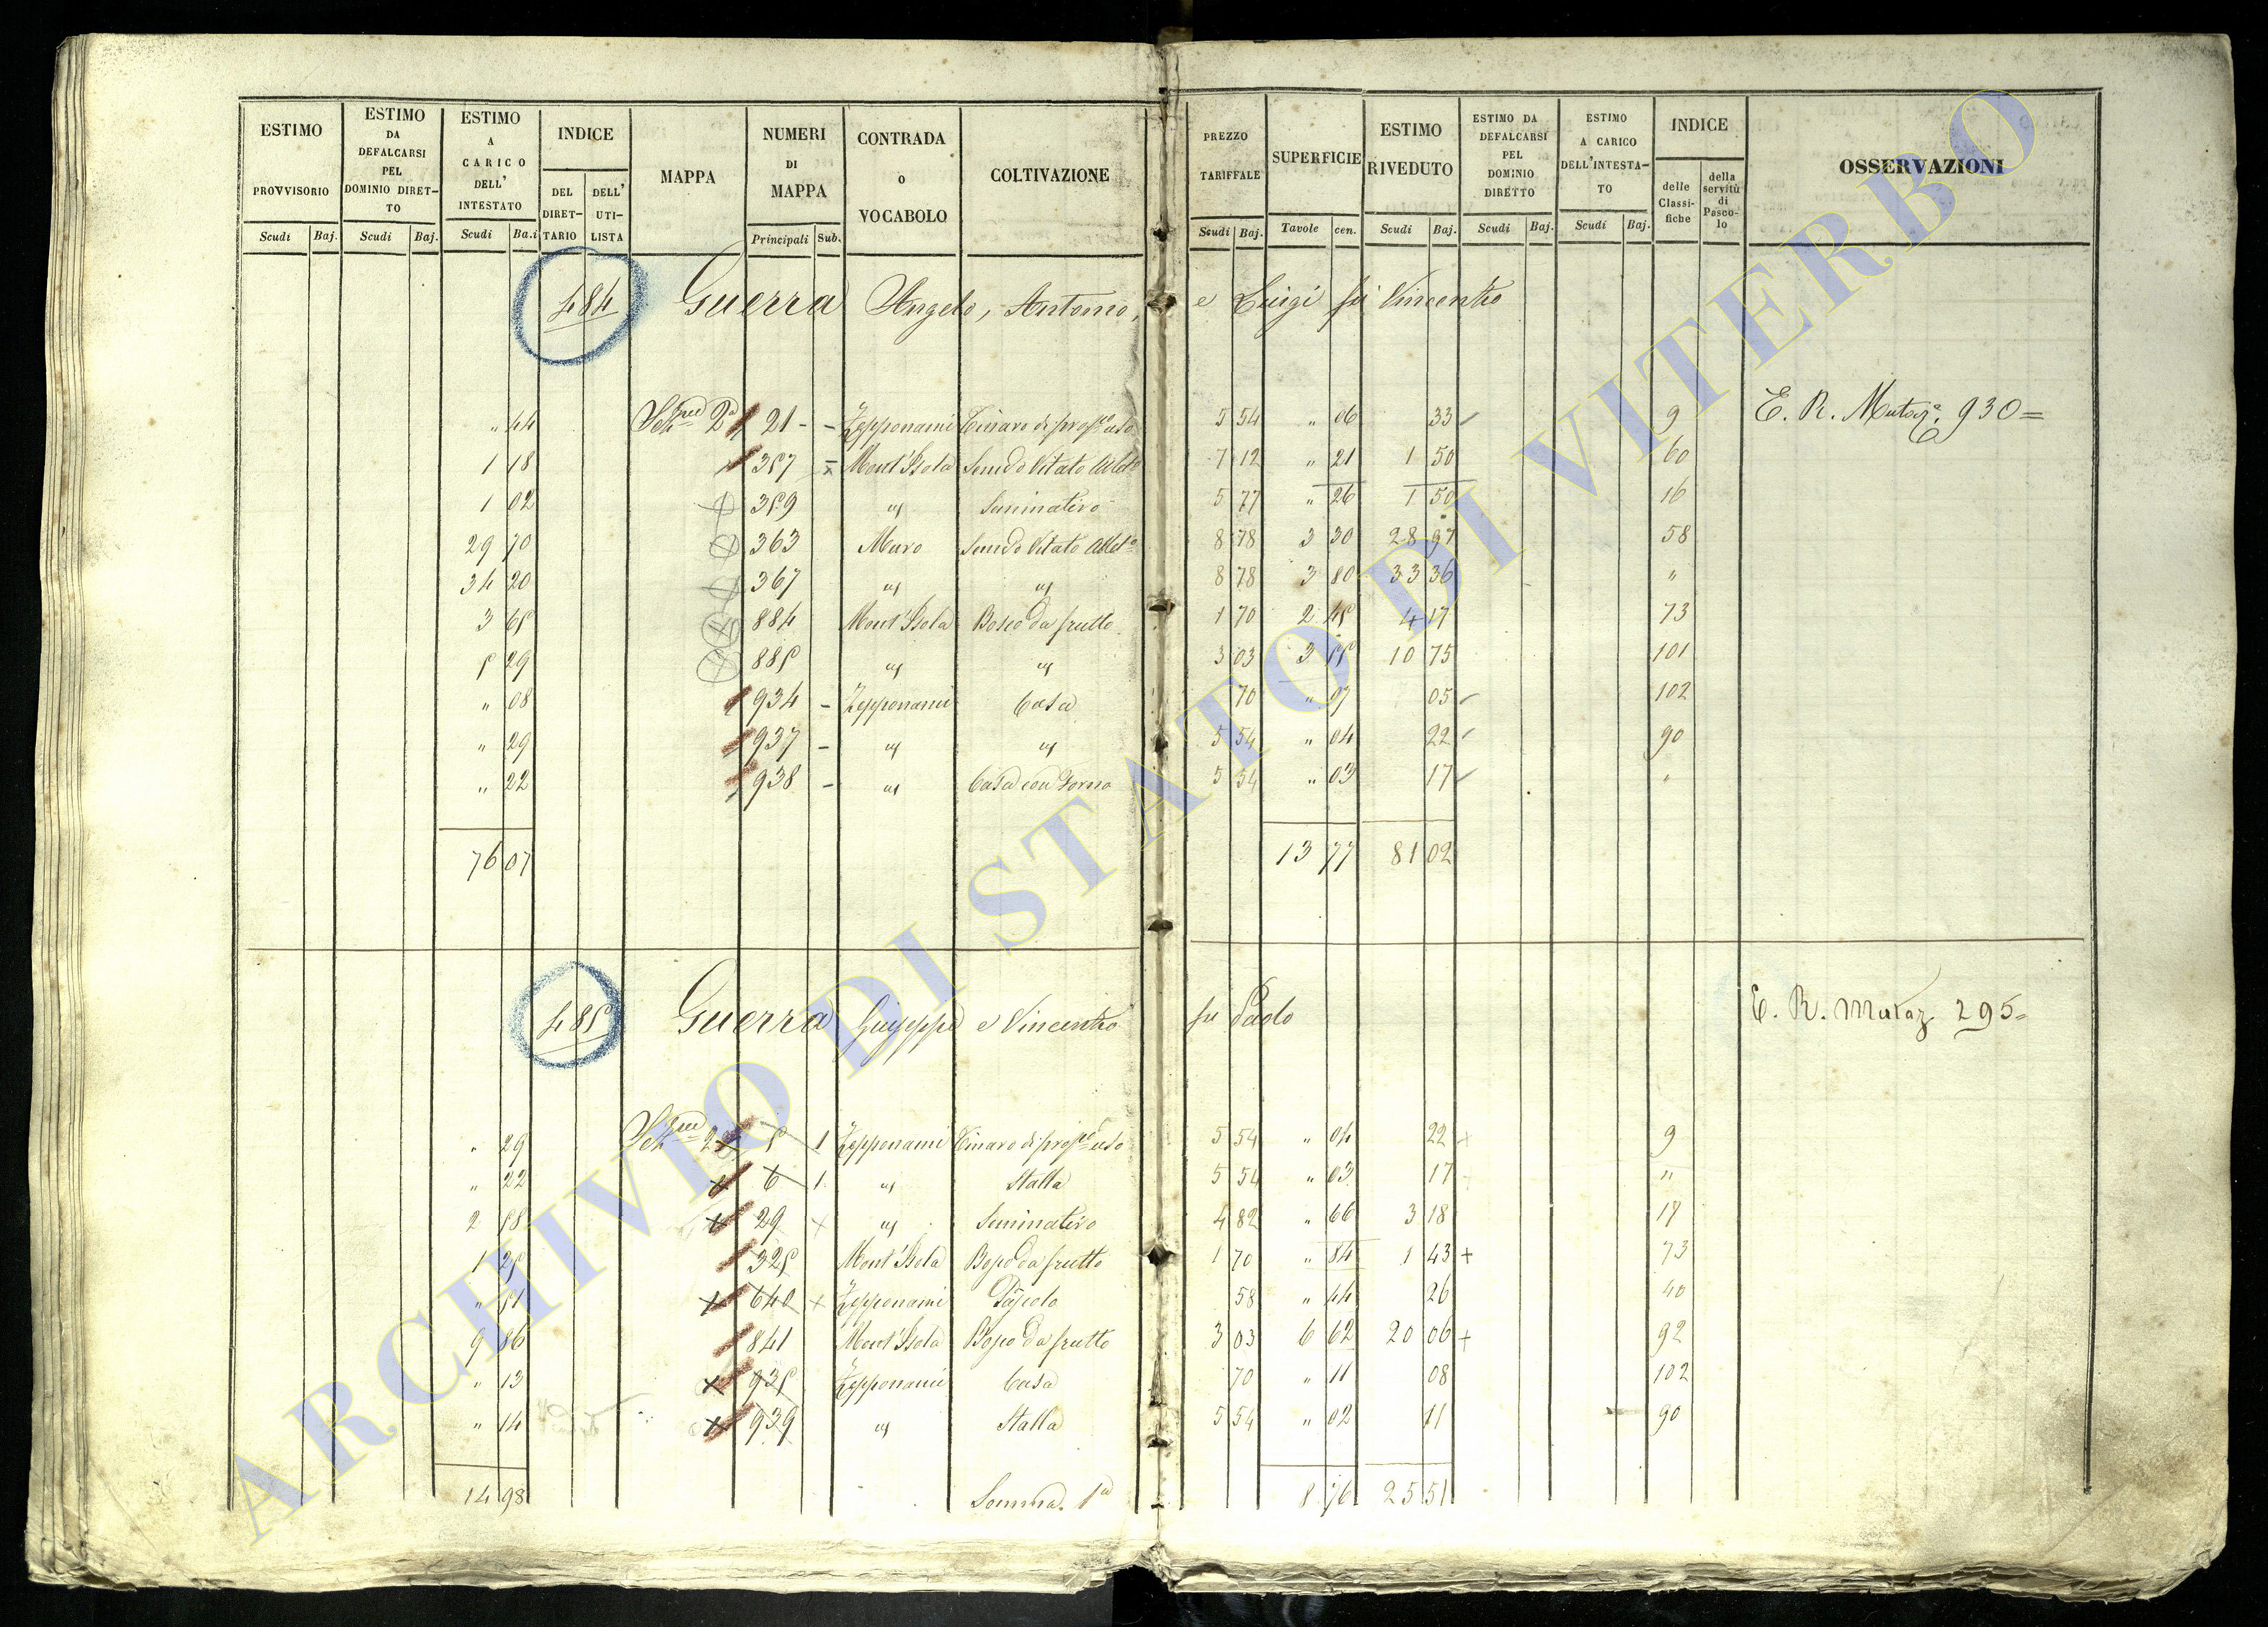 ESTIMO PROVVISORIO Scudi Baj.
ESTIMO DA DEFALCARSI PEL DOMINIO DIRET-TO Scudi Baj.
ESTIMO A CARICO DELL' INTESTATO Scudi Ba.i
INDICE DEL DIRET-TARIO DELL' UTI-LISTA
MAPPA
NUMERI DI MAPPA Principali Sub.
CONTRADA o VOCABOLO
COLTIVAZIONE
PREZZO TARIFFALE Scudi Baj.
SUPERFICIE Tavole cen.
ESTIMO RIVEDUTO Scudi Baj.
ESTIMO DA DEFALCARSI PEL DOMINIO DIRETTO Scudi Baj.
ESTIMO A CARICO DELL'INTESTA-TO Scudi Baj.
INDICE delle Classi-fiche della servitù di Pasco-lo
OSSERVAZIONI
484 Guerra Angelo, Antonio, e Luigi fu Vincenzo
" 44 2a 21 - - Zepponami Tinaro di propo uso 5 54 " 06 33 9 E. R. Mutaz. 930=
1 18 357 Mont'Isola Semivo Vitato 7 12 " 21 1 50 60
1 02 359 " Seminativo 5 77 " 26 1 50 16
29 70 363 Muro Semivo Vitato 8 78 3 30 28 97 58
34 20 367 " " 8 78 3 80 33 36 "
3 65 884 Mont'Isola Bosco da frutto 1 70 2 45 4 17 73
5 29 885 " " 3 03 3 55 10 75 101
" 08 934 - Zepponami Casa 70 " 07 05 102
" 29 937 - " " 5 54 " 04 22 90
" 22 938 - " Casa con Forno 5 54 " 03 17 "
76 07 13 77 81 02
485 Guerra Giuseppe e Vincenzo fu Paolo E. R. Mutaz. 295=
" 29 5 1 Zepponami Tinaro di propo uso 5 54 " 04 22 9
" 22 6 1 " Stalla 5 54 " 03 17 "
2 58 29 " Seminativo 4 82 " 66 3 18 17
1 25 325 Mont'Isola Bosco da frutto 1 70 " 84 1 43 + 73
" 51 640 Zepponami Pascolo 58 " 44 26 40
9 86 841 Mont'Isola Bosco da frutto 3 03 6 62 20 06 + 92
" 13 935 Zepponami Casa 70 " 11 08 102
" 14 939 " Stalla 5 54 " 02 11 90
14 98 Somma 1a 8 76 25 51
ARCHIVIO DI STATO DI VITERBO